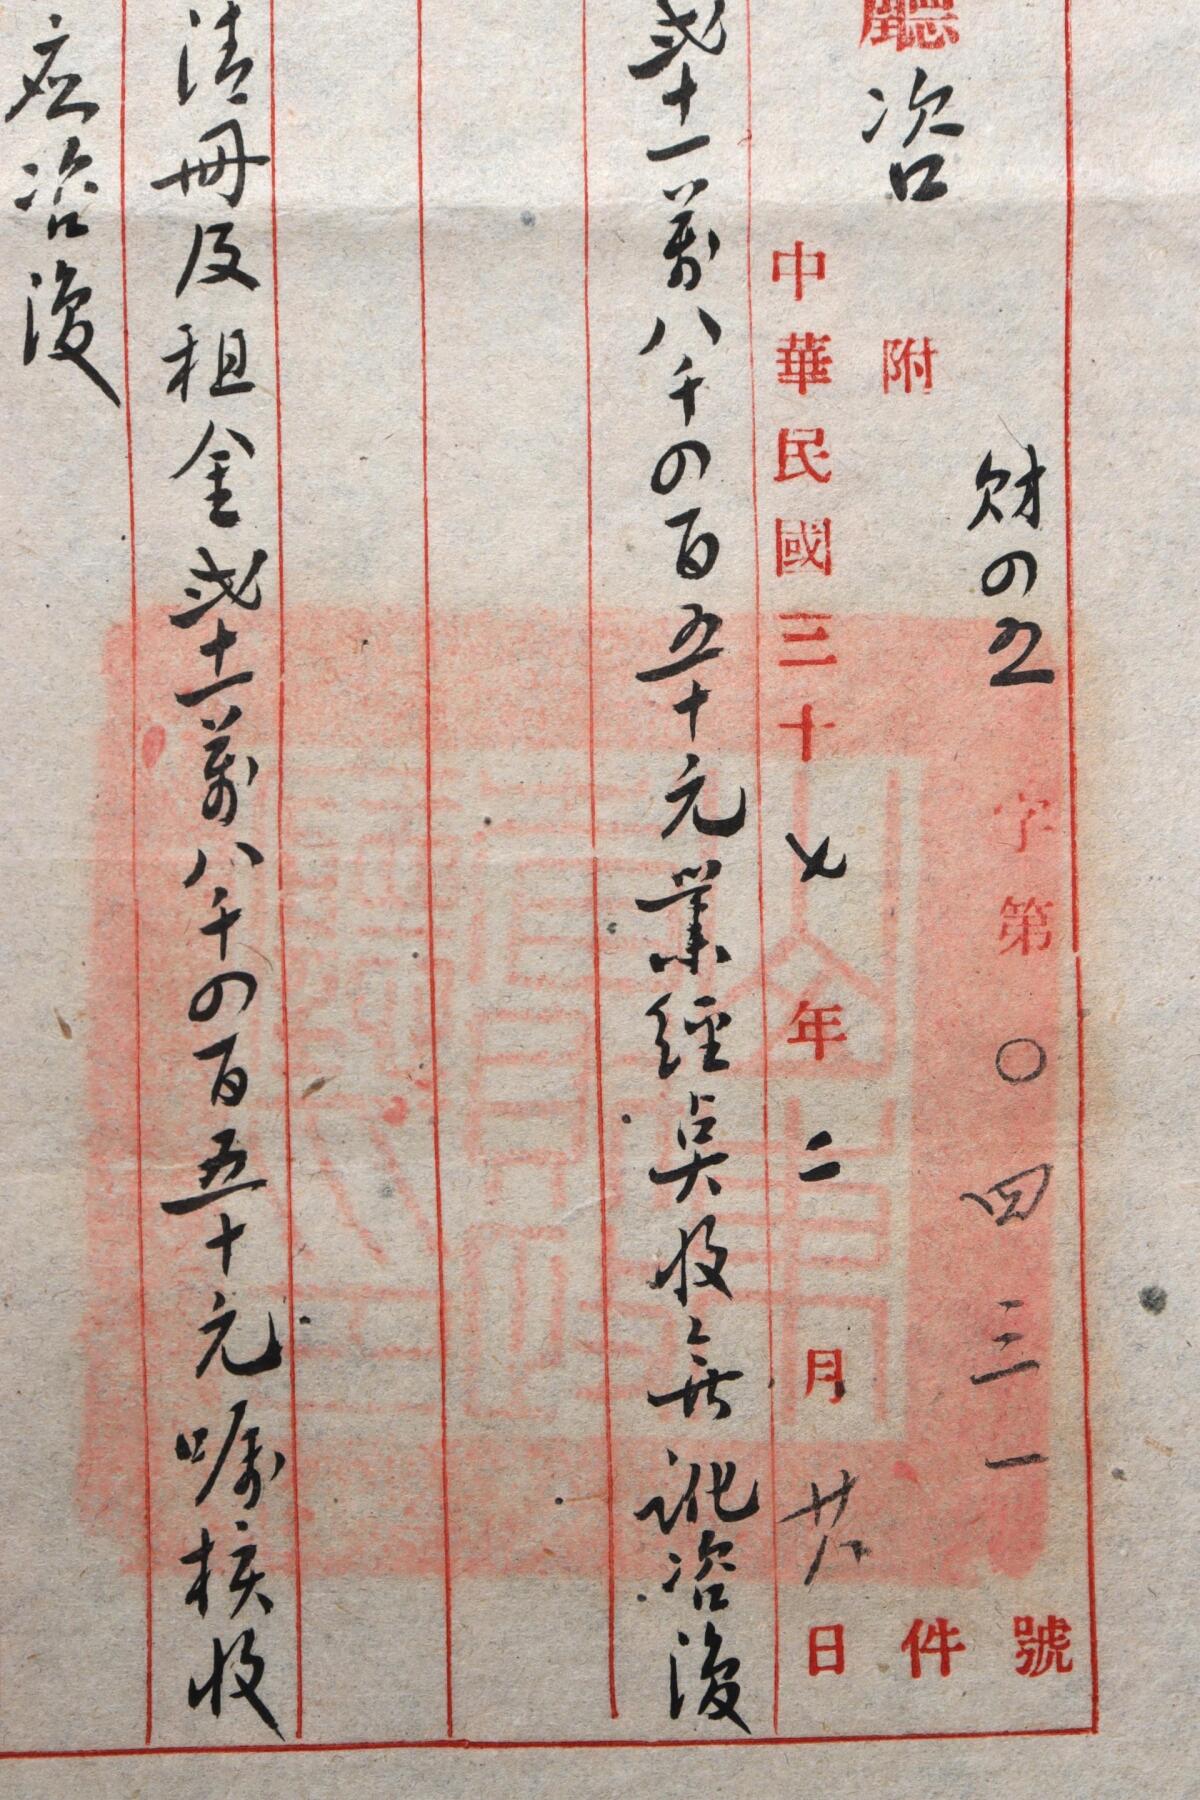 財四五字第〇四三一號
廳咨附件
中華民國三十七年二月廿日
弍十一萬八千四百五十元業經奌收無訛咨復
清冊及租金弍十一萬八千四百五十元嘱核收
应咨復